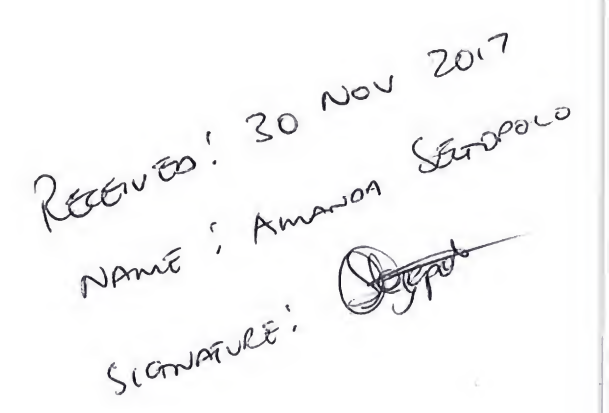 RECEIVED: 30 NOV 2017
NAME: AMANDA
SIGNATURE: